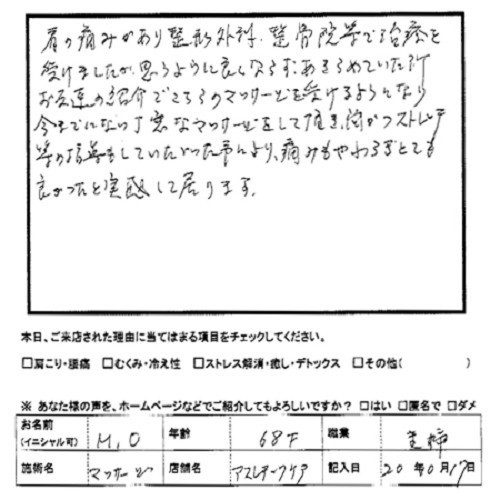 肩の痛みがあり整形外科、整骨院等で治療を
受けましたが思うように良くならずあきらめていた所
お友達の紹介でこちらのマッサージを受けるようになり
今までにない丁寧なマッサージをして頂き、尚かつストレッチ
等の指導もしていただいた事により、痛みもやわらぎとても
良かったと実感して居ります。
本日、ご来店された理由に当てはまる項目をチェックしてください。
□肩こり・腰痛 □むくみ・冷え性 □ストレス解消・癒し・デトックス □その他( )
※ あなた様の声を、ホームページなどでご紹介してもよろしいですか？ □はい □匿名で □ダメ
お名前 (イニシャル可) M,O 年齢 68才 職業 主婦
施術名 マッサージ 店舗名 アスレチッククラブ 記入日 20年 月17日